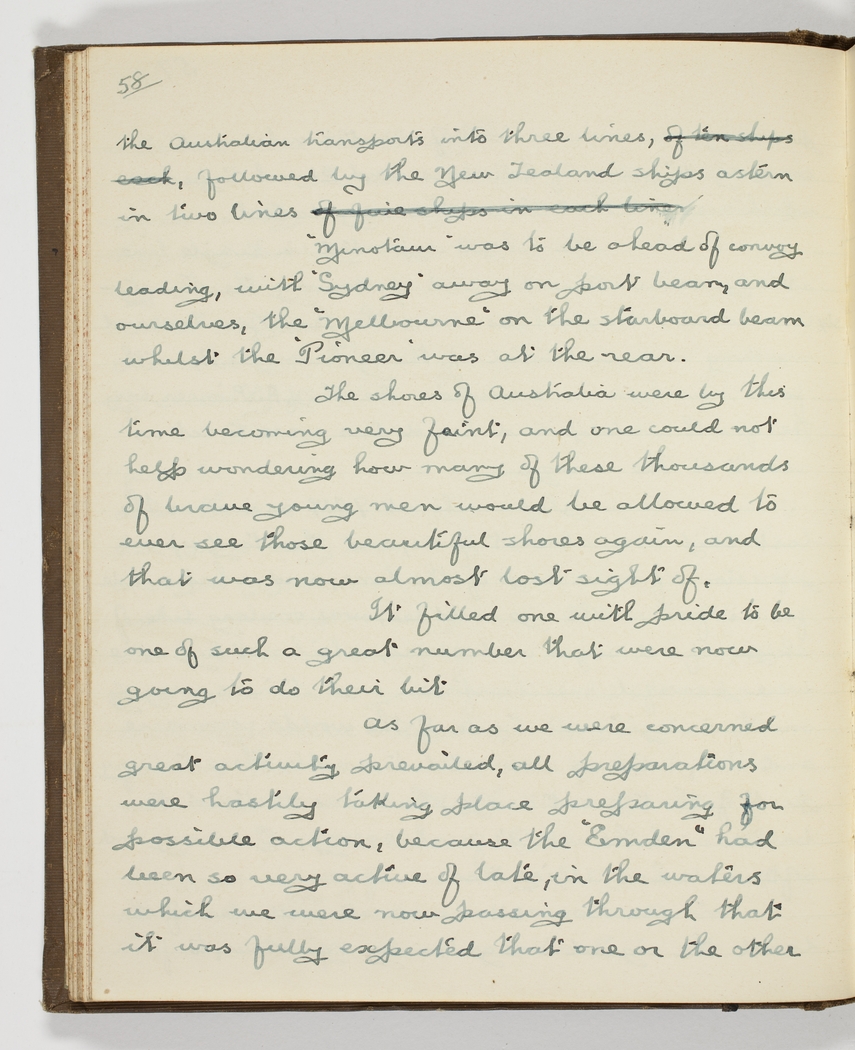 58
the Australian transports into three lines, of ten ships
each, followed by the New Zealand ships astern
in two lines of five ships in each line
"Minotaur" was to be ahead of convoy
leading, with "Sydney" away on port beam, and
ourselves, the "Melbourne" on the starboard beam
whilst the "Pioneer" was at the rear.
The shores of Australia were by this
time becoming very feint, and one could not
help wondering how many of these thousands
of brave young men would be allowed to
ever see those beautiful shores again, and
that was now almost lost sight of.
It filled one with pride to be
one of such a great number that were now
going to do their bit
As far as we were concerned
great activity prevailed, all preparations
were hastily taking place preparing for
possible action, because the "Emden" had
been so very active of late, in the waters
which we were now passing through that
it was fully expected that one or the other